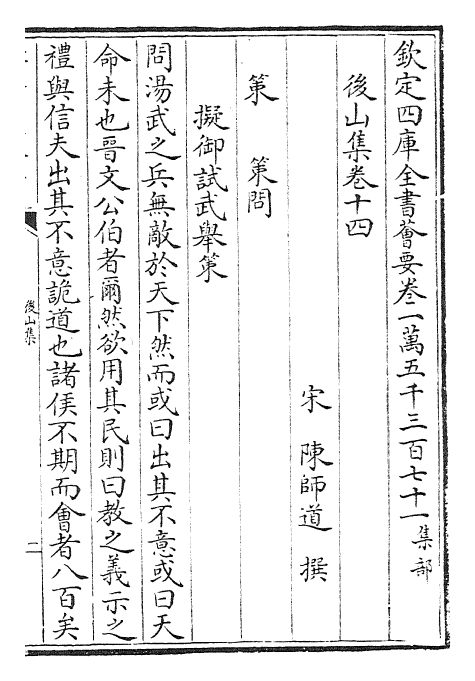 欽定四庫全書薈要卷一萬五千三百七十一集部
後山集卷十四
宋 陳師道 撰
策 策問
擬御試武舉策
問湯武之兵無敵於天下然而或曰出其不意或曰天
命未也晉文公伯者爾然欲用其民則曰教之義示之
禮與信夫出其不意詭道也諸侯不期而會者八百矣
後山集
二